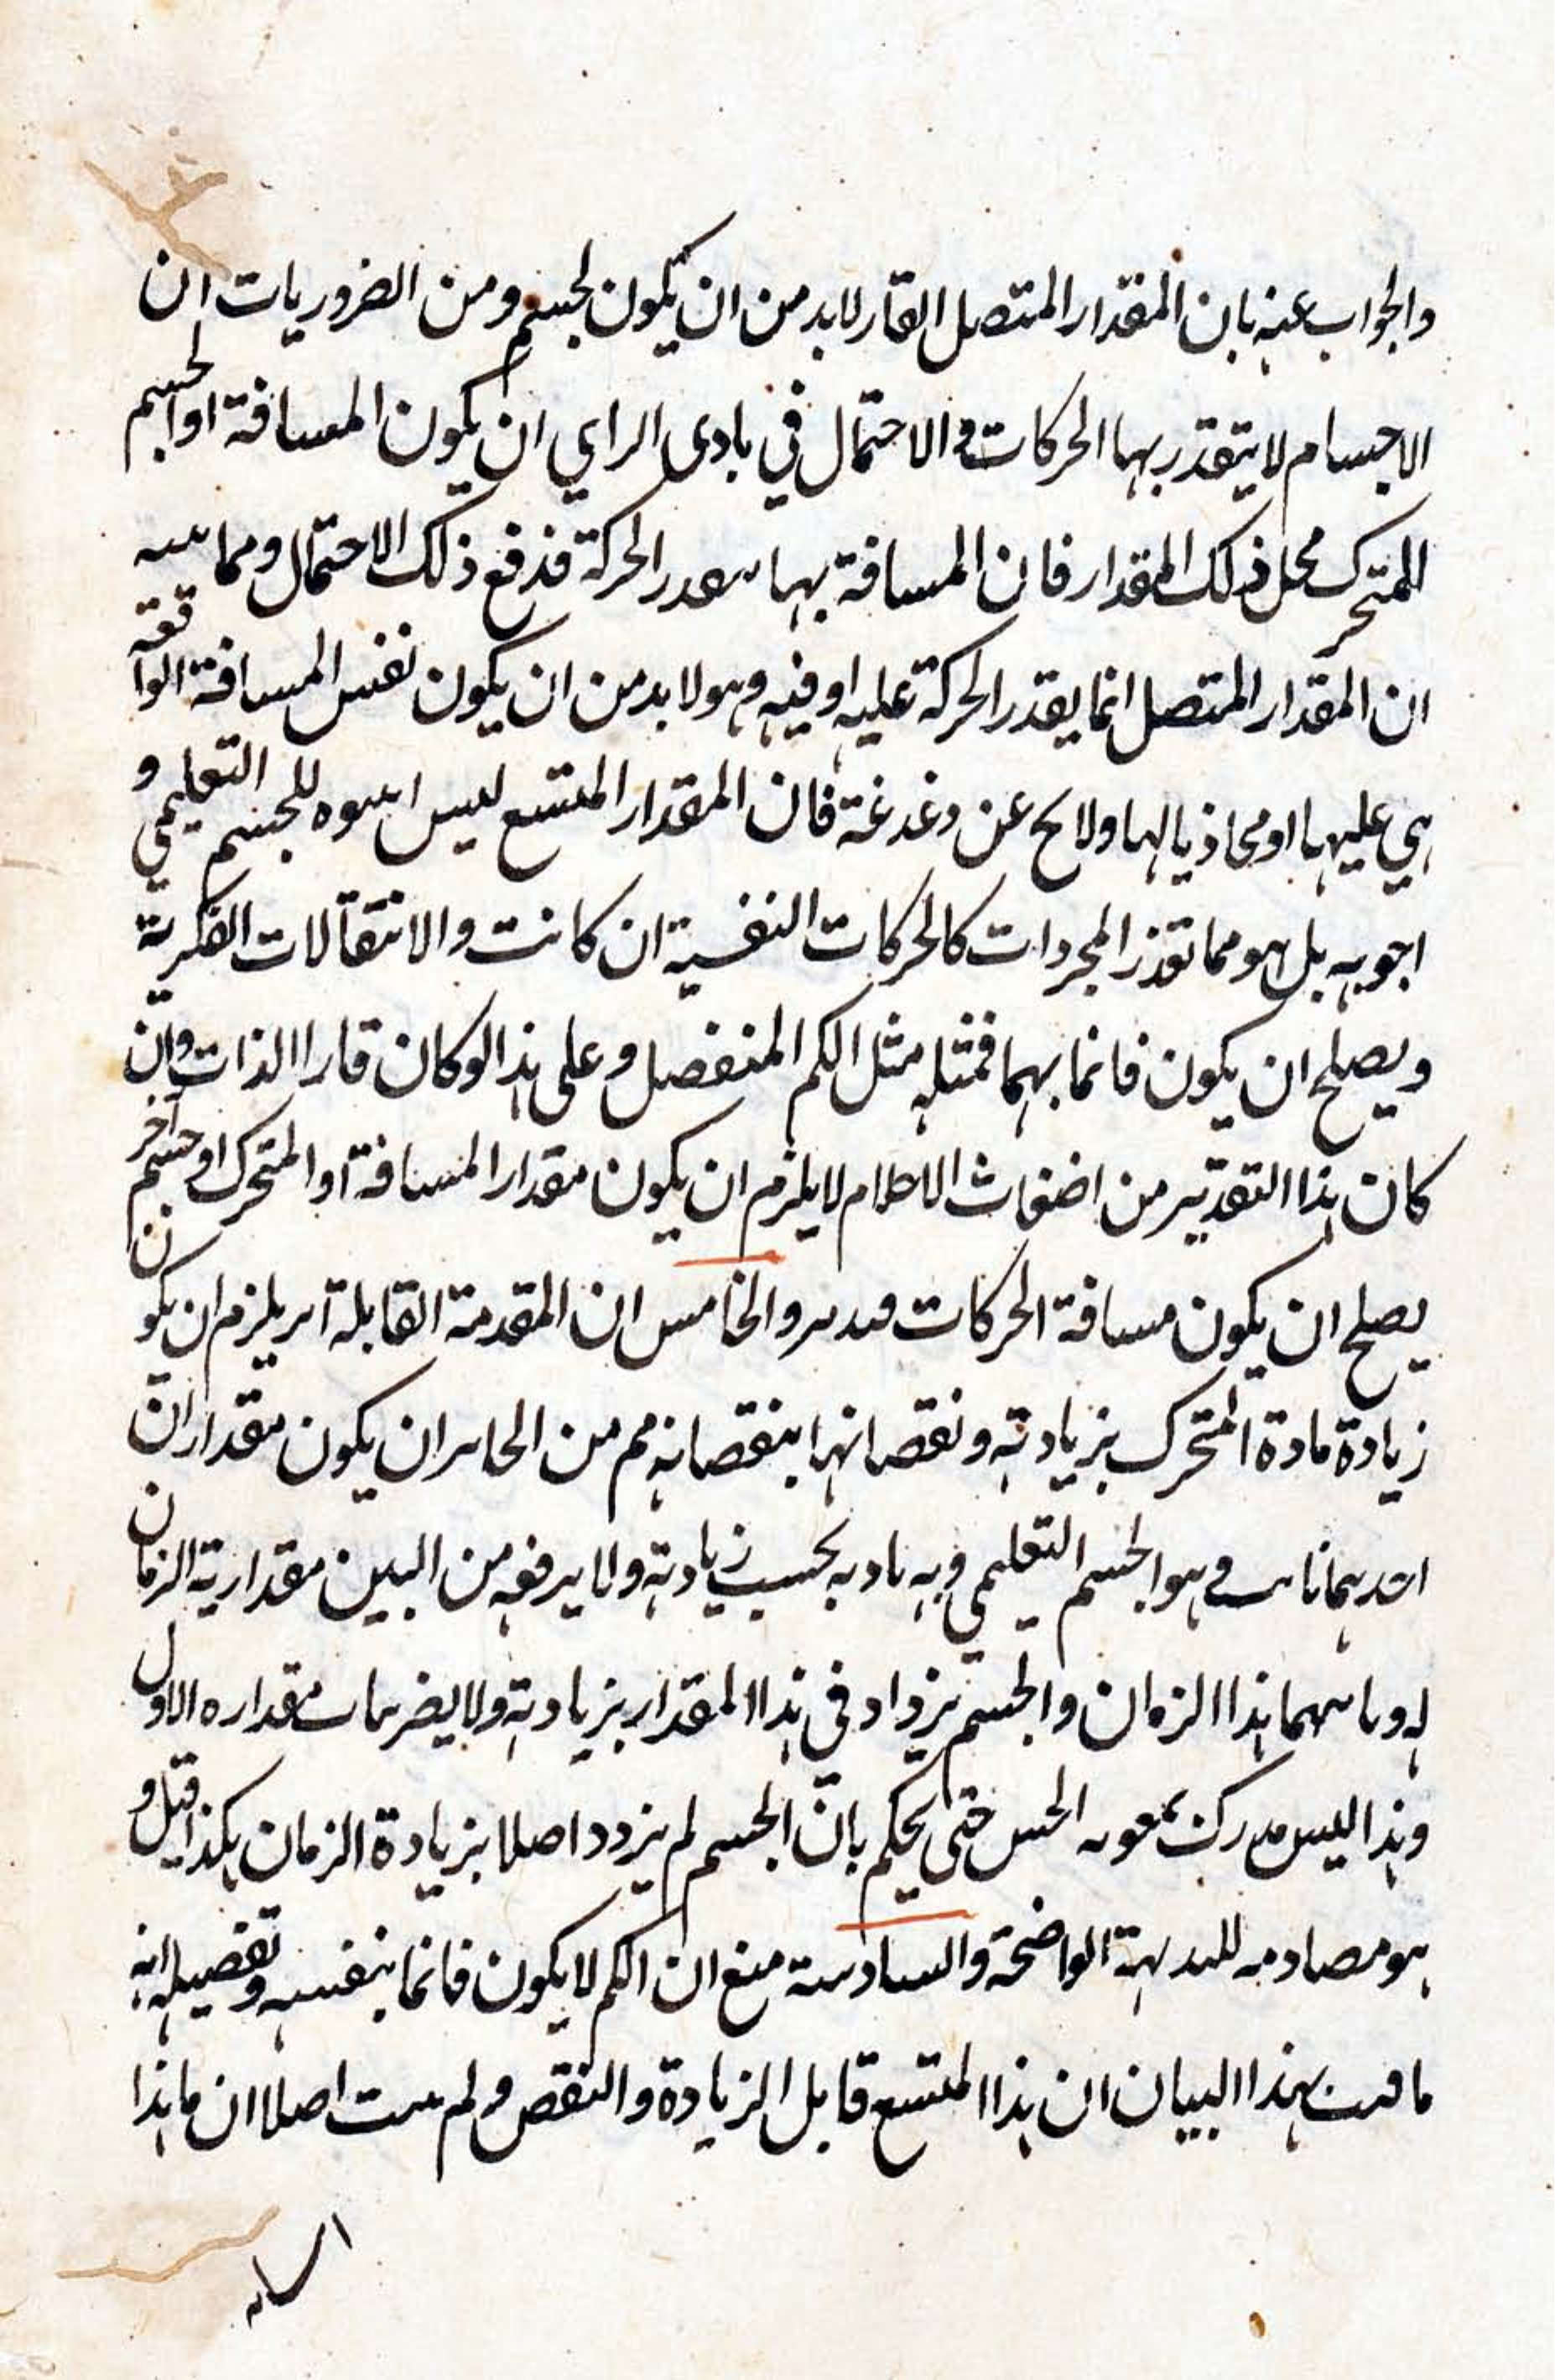 والجواب عنه بان المقدار المتصل القار لابد من ان يكون لجسم ومن الضروريات ان
الاجسام لا يتقدر بها الحركات والاحتمال في بادى الراي ان يكون المسافة او الجسم
المتحرك محل ذلك المقدار فان المسافة بها الحركة فدفع ذلك الاحتمال ومما
ان المقدار المتصل انما يقدر الحركة عليه او فيه وهو لا بد من ان يكون نفس المسافة الواقعة
هي عليها او محاذيا لها ولا يخ عن دغدغة فان المقدار المتسع ليس للجسم التعليمي و
بل هو مما تقدر المجردات كالحركات النفسية ان كانت والانتقالات الفكرية
ويصلح ان يكون قائما بهما فمثله مثل الكم المنفصل وعلى هذا لو كان قارا الذات وان
كان هذا التقدير من اضغاث الاحلام لا يلزم ان يكون مقدار المسافة او المتحرك او جسم آخر
يصلح ان يكون مسافة الحركات والخامس ان المقدمة القابلة يلزم ان يكون
زيادة مادة المتحرك بزيادته ونقصانها بنقصانه مم من ان يكون مقداران
وهو الجسم التعليمي وبه بحسب زيادته ولا يرفعه من البين مقدارية الزمان
له هذا الزمان والجسم يزداد في هذا المقدار بزيادته ولا يضر مقداره الاول
وهذا ليس الحس حتى يحكم بان الجسم لم يزدد اصلا بزيادة الزمان هكذا قيل و
هو مصادمه للبديهة الواضحة والسادسة منع ان الكم لا يكون قائما بنفسه وتفصيله انه
ما بهذا البيان ان هذا المتسع قابل الزيادة والنقص ولم اصلا ان ما هذا